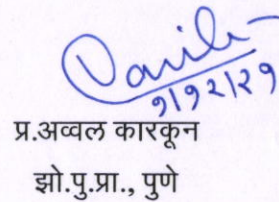 १/१२/२१
प्र.अव्वल कारकून
झो.पु.प्रा., पुणे